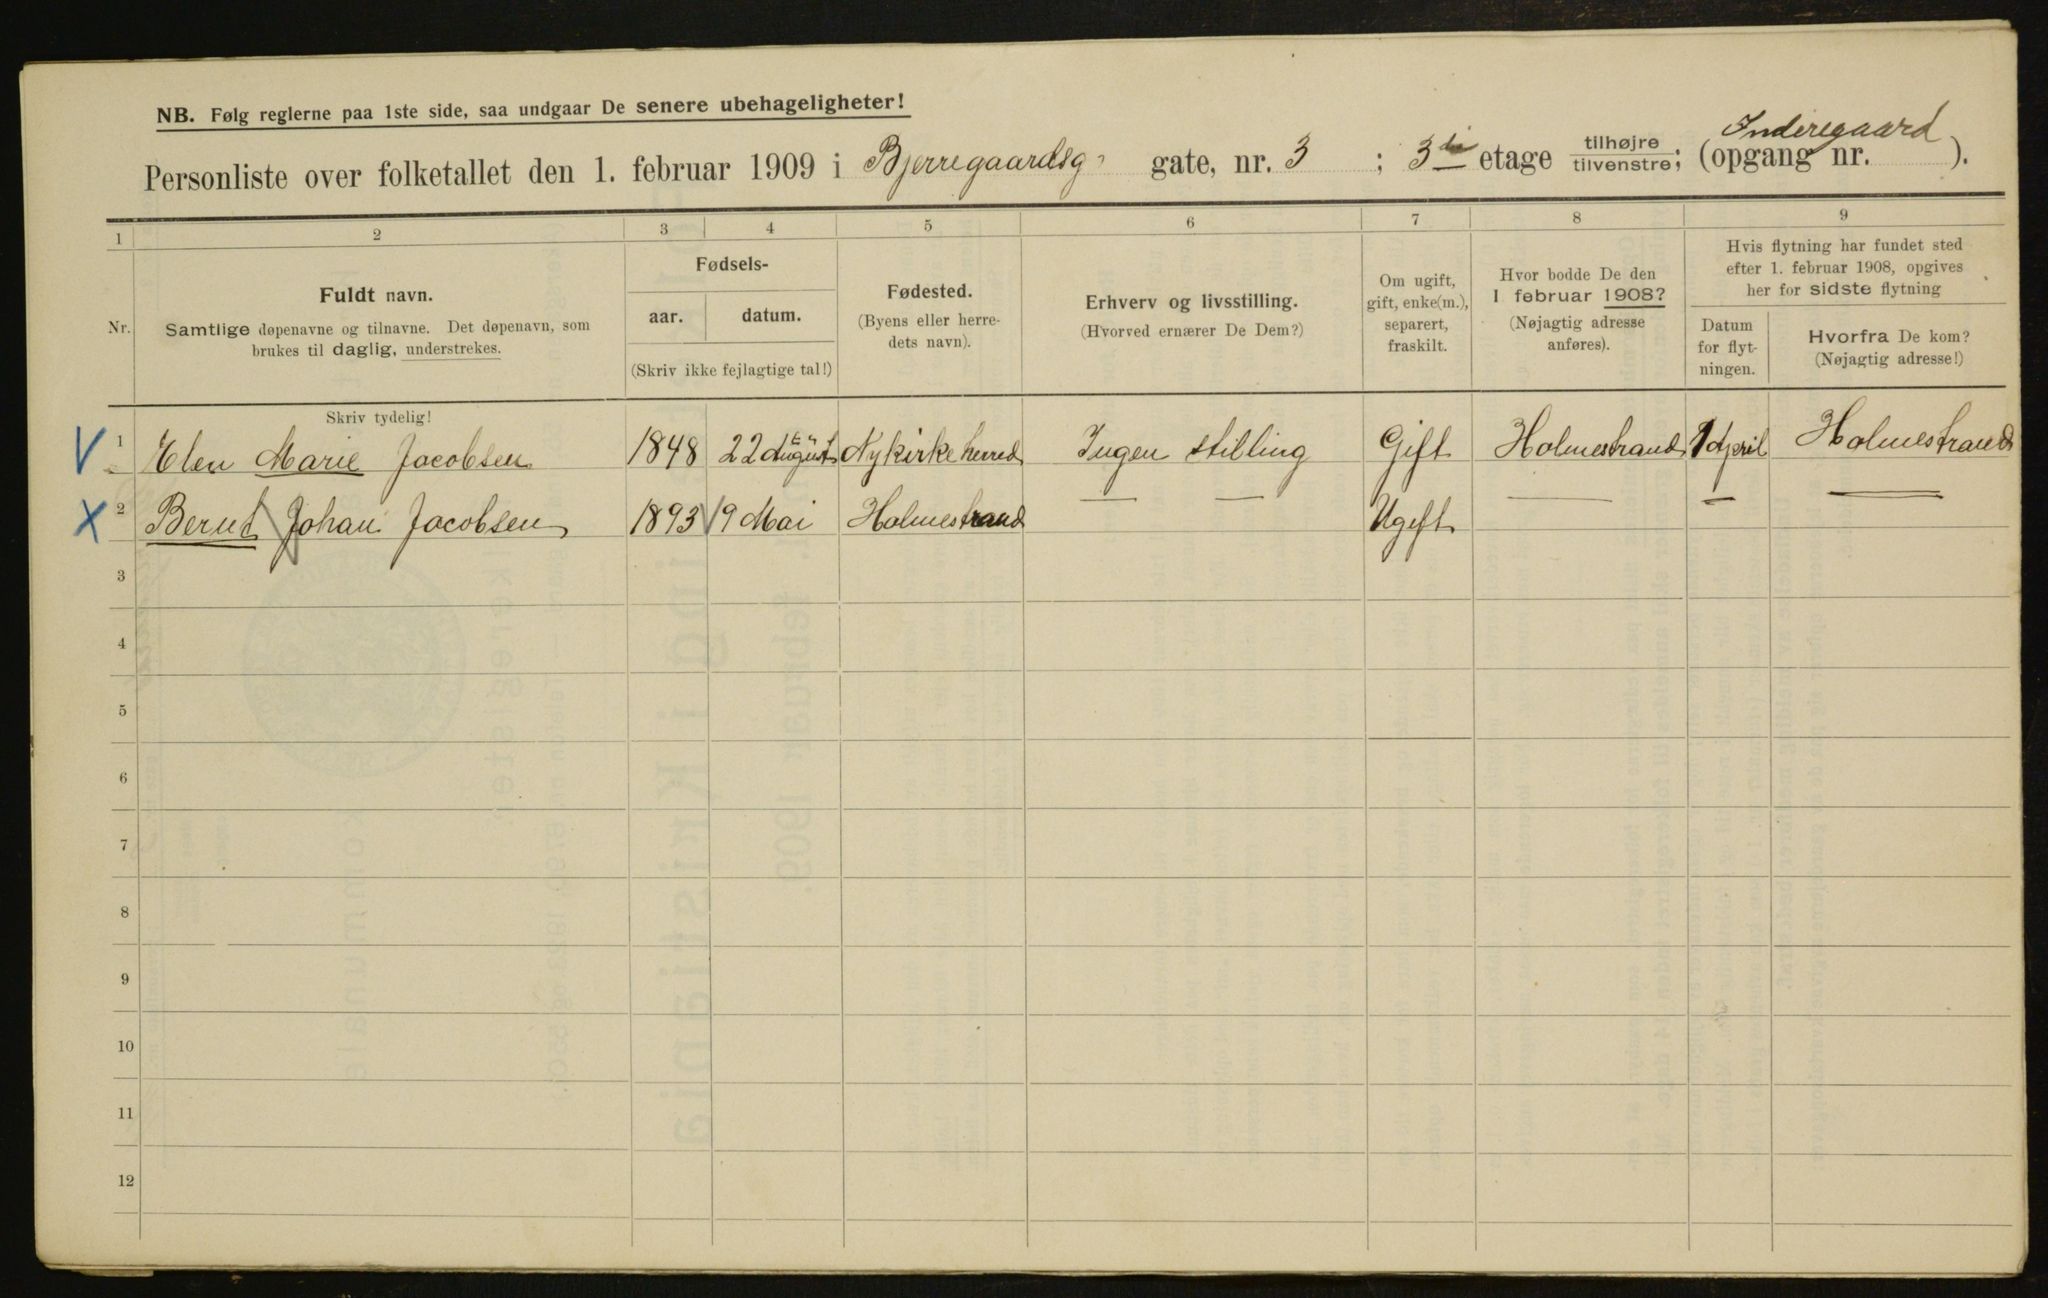 NB. Følg reglerne paa 1ste side, saa undgaar De senere ubehageligheter!
Personliste over folketallet den 1. februar 1909 i Bjerregaardsg. gate, nr. 3 ; 3di etage tilhøjre tilvenstre; (opgang nr. Inderegaard ).
1 2 3 4 5 6 7 8 9
Nr.
Fuldt navn.
Samtlige døpenavne og tilnavne. Det døpenavn, som
brukes til daglig, understrekes.
Fødsels-
aar. datum.
(Skriv ikke fejlagtige tal!)
Fødested.
(Byens eller herre-
dets navn).
Erhverv og livsstilling.
(Hvorved ernærer De Dem?)
Om ugift,
gift, enke(m.),
separert,
fraskilt.
Hvor bodde De den
1 februar 1908?
(Nøjagtig adresse
anføres).
Hvis flytning har fundet sted
efter 1. februar 1908, opgives
her for sidste flytning
Datum
for flyt-
ningen.
Hvorfra De kom?
(Nøjagtig adresse!)
Skriv tydelig!
1 Elen Marie Jacobsen 1848 22 August Nykirke herred Ingen stilling Gift Holmestrand 1 April Holmestrand
2 Bernt Johan Jacobsen 1893 19 Mai Holmestrand — — Ugift — — —
3
4
5
6
7
8
9
10
11
12